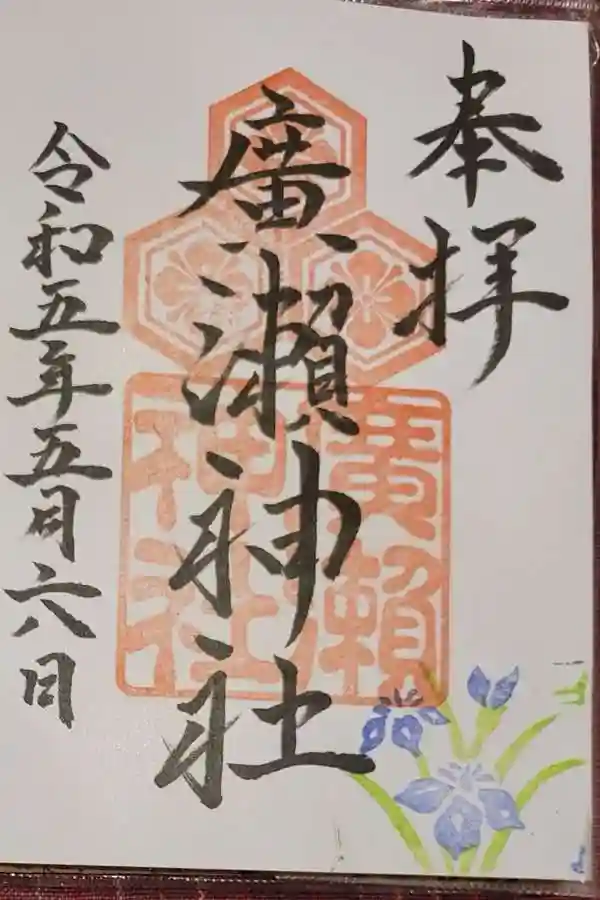 奉拝
廣瀬神社
廣瀬神社
令和五年五月六日